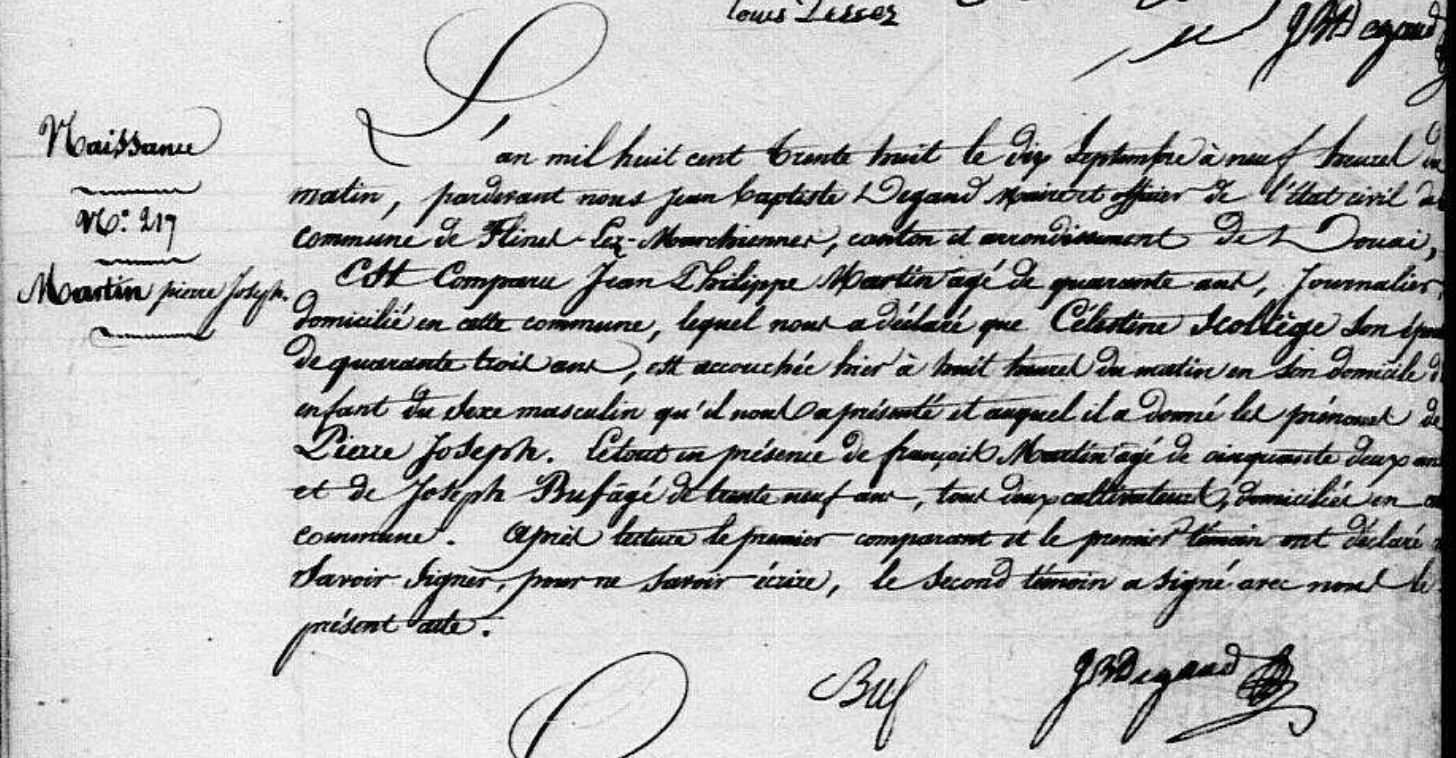 Louis Lesser
JBte Degand
Naissance
N.° 217
Martin pierre Joseph.
L'an mil huit cent trente huit le dix Septembre à neuf heures du
matin, pardevant nous Jean Baptiste Degand Maire et officier de l'Etat civil de
commune de Flines-Lez-Marchiennes, canton et arrondissement de Douai,
Est Comparu Jean Philippe Martin agé de quarante ans, Journalier,
domicilié en cette commune, lequel nous a déclaré que Célestine Scollège Son épou
de quarante trois ans, est accouchée hier à huit heures du matin en Son domicile d'
enfant du sexe masculin qu'il nous a présenté et auquel il a donné les prénoms de
Pierre Joseph. Le tout en présence de françois Martin agé de cinquante deux ans
et de Joseph Buf agé de trente neuf ans, tous deux cultivateurs, domiciliés en
commune. Après lecture le premier comparant et le premier témoin ont déclaré
Savoir Signer, pour ne Savoir écrire, le Second témoin a signé avec nous le
présent acte.
Buf
JBDegand